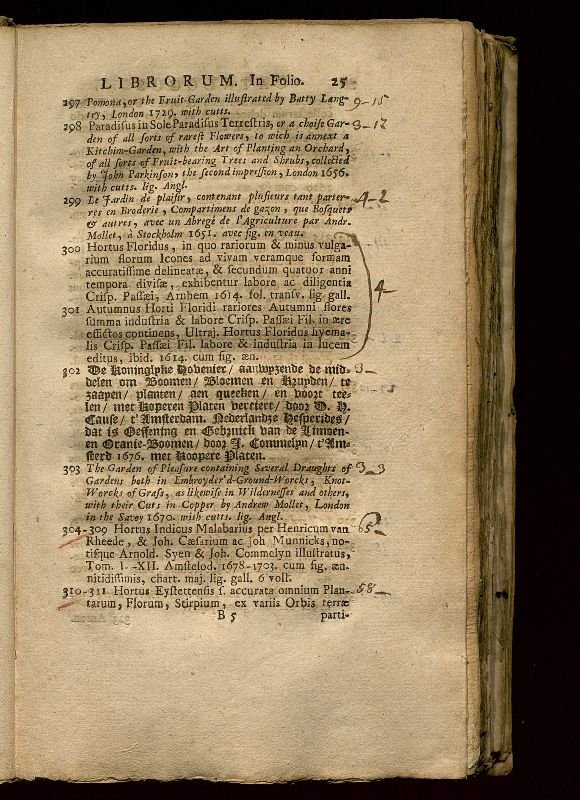 LIBRORUM. In Folio. 25
297 Pomona, or the Fruit-Garden illustrated by Batty Lang- 9-15
ley, London 1729. with cutts.
298 Paradisus in Sole Paradisus Terrestris, or a choise Gar- 3-12
den of all sorts of rarest Flowers, to wich is annext a
Kitchim-Garden, with the Art of Planting an Orchard,
of all sorts of Fruit-bearing Trees and Shrubs, collected
by John Parkinson, the second impression, London 1656.
with cutts. lig. Angl.
299 Le Jardin de plaisir, contenant plusieurs tant parter- 4-2
res en Broderie, Compartimens de gazon, que Bosquets
& autres, avec un Abregé de l'Agriculture par Andr.
Mollet, à Stockholm 1651. avec fig. en veau.
300 Hortus Floridus, in quo rariorum & minus vulga-
rium florum Icones ad vivam veramque formam
accuratissime delineatæ, & secundum quatuor anni
tempora divisæ, exhibentur labore ac diligentia
Crisp. Passæi, Arnhem 1614. fol. transv. lig. gall. 4-
301 Autumnus Horti Floridi rariores Autumni flores
summa industria & labore Crisp. Passæi Fil. in ære
effictos continens, Ultraj. Hortus Floridus hyema-
lis Crisp. Passæi Fil. labore & industria in lucem
editus, ibid. 1614. cum fig. æn.
302 De Koninglyke Hovenier/ aanwyzende de mid- 3-
delen om Boomen/ Bloemen en Kruyden/ te
zaayen/ planten/ aen queeken/ en voort tee-
len/ met koperen Platen verciert/ door D. H.
Cause/ t'Amsterdam. Nederlandze Hesperides/
dat is Oeffening en Gebruick van de Limoen-
en Oranie-Boomen/ door J. Commelyn/ t'Am-
sterd 1676. met Koopere Platen.
303 The Garden of Pleasure containing Several Draughts of 3-3
Gardens both in Embroyder'd-Ground-Worcks, Knot-
Worcks of Grass, as likewise in Wildernesses and others,
with their Cuts in Copper by Andrew Mollet, London
in the Savoy 1670. with cutts. lig. Angl.
304-309 Hortus Indicus Malabarius per Henricum van 65-
Rheede, & Joh. Cæsarium ac Joh Munnicks, no-
tisque Arnold. Syen & Joh. Commelyn illustratus,
Tom. I--XII. Amstelod. 1678-1703. cum fig. æn.
nitidissimis, chart. maj. lig. gall. 6 voll.
310-311 Hortus Eystettensis s. accurata omnium Plan- 58-
tarum, Florum, Stirpium, ex variis Orbis terræ
B 5 parti-